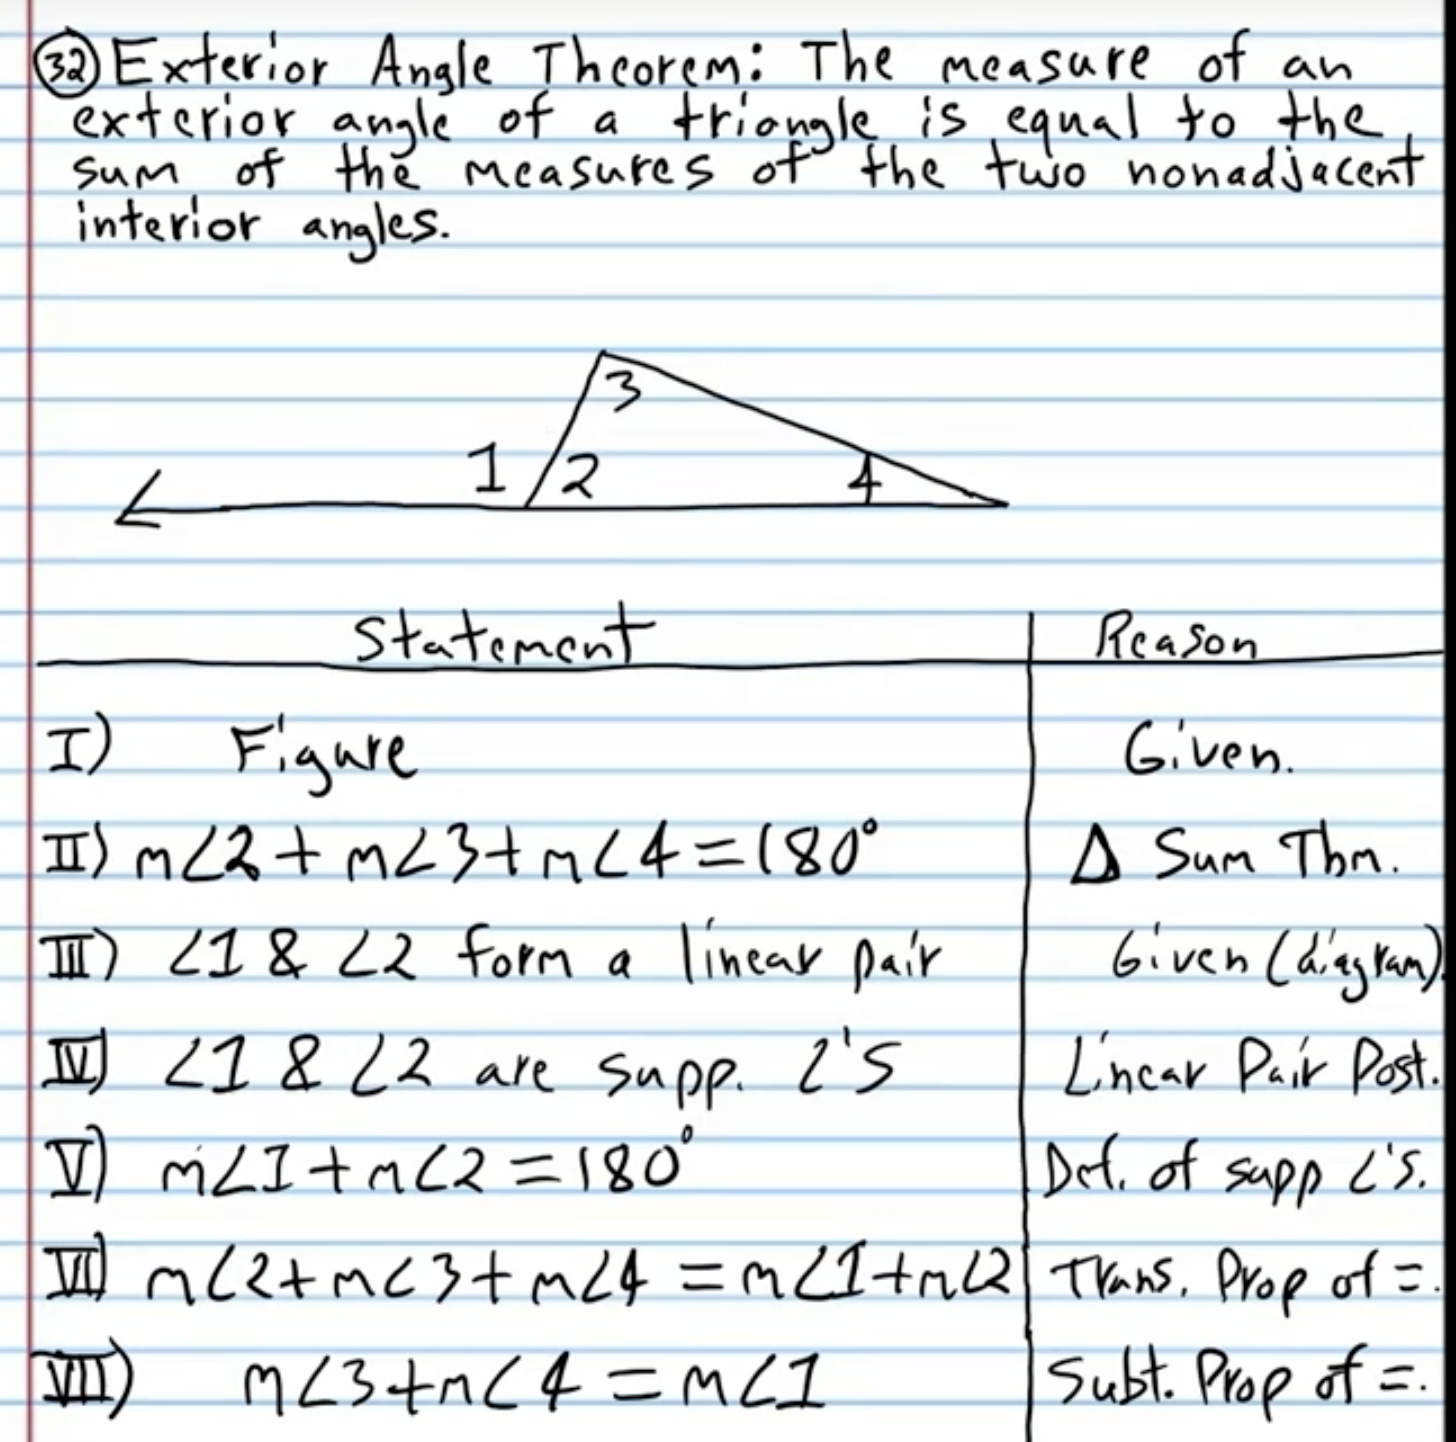 32 Exterior Angle Theorem: The measure of an
exterior angle of a triangle is equal to the
sum of the measures of the two nonadjacent
interior angles.
3
1 2 4
Statement Reason
I) Figure Given.
II) m∠2 + m∠3 + m∠4 = 180° Δ Sum Thm.
III) ∠1 & ∠2 form a linear pair Given (diagram).
IV) ∠1 & ∠2 are supp. ∠'s Linear Pair Post.
V) m∠1 + m∠2 = 180° Def. of supp ∠'s.
VI) m∠2 + m∠3 + m∠4 = m∠1 + m∠2 Trans. Prop of =.
VII) m∠3 + m∠4 = m∠1 Subt. Prop of =.